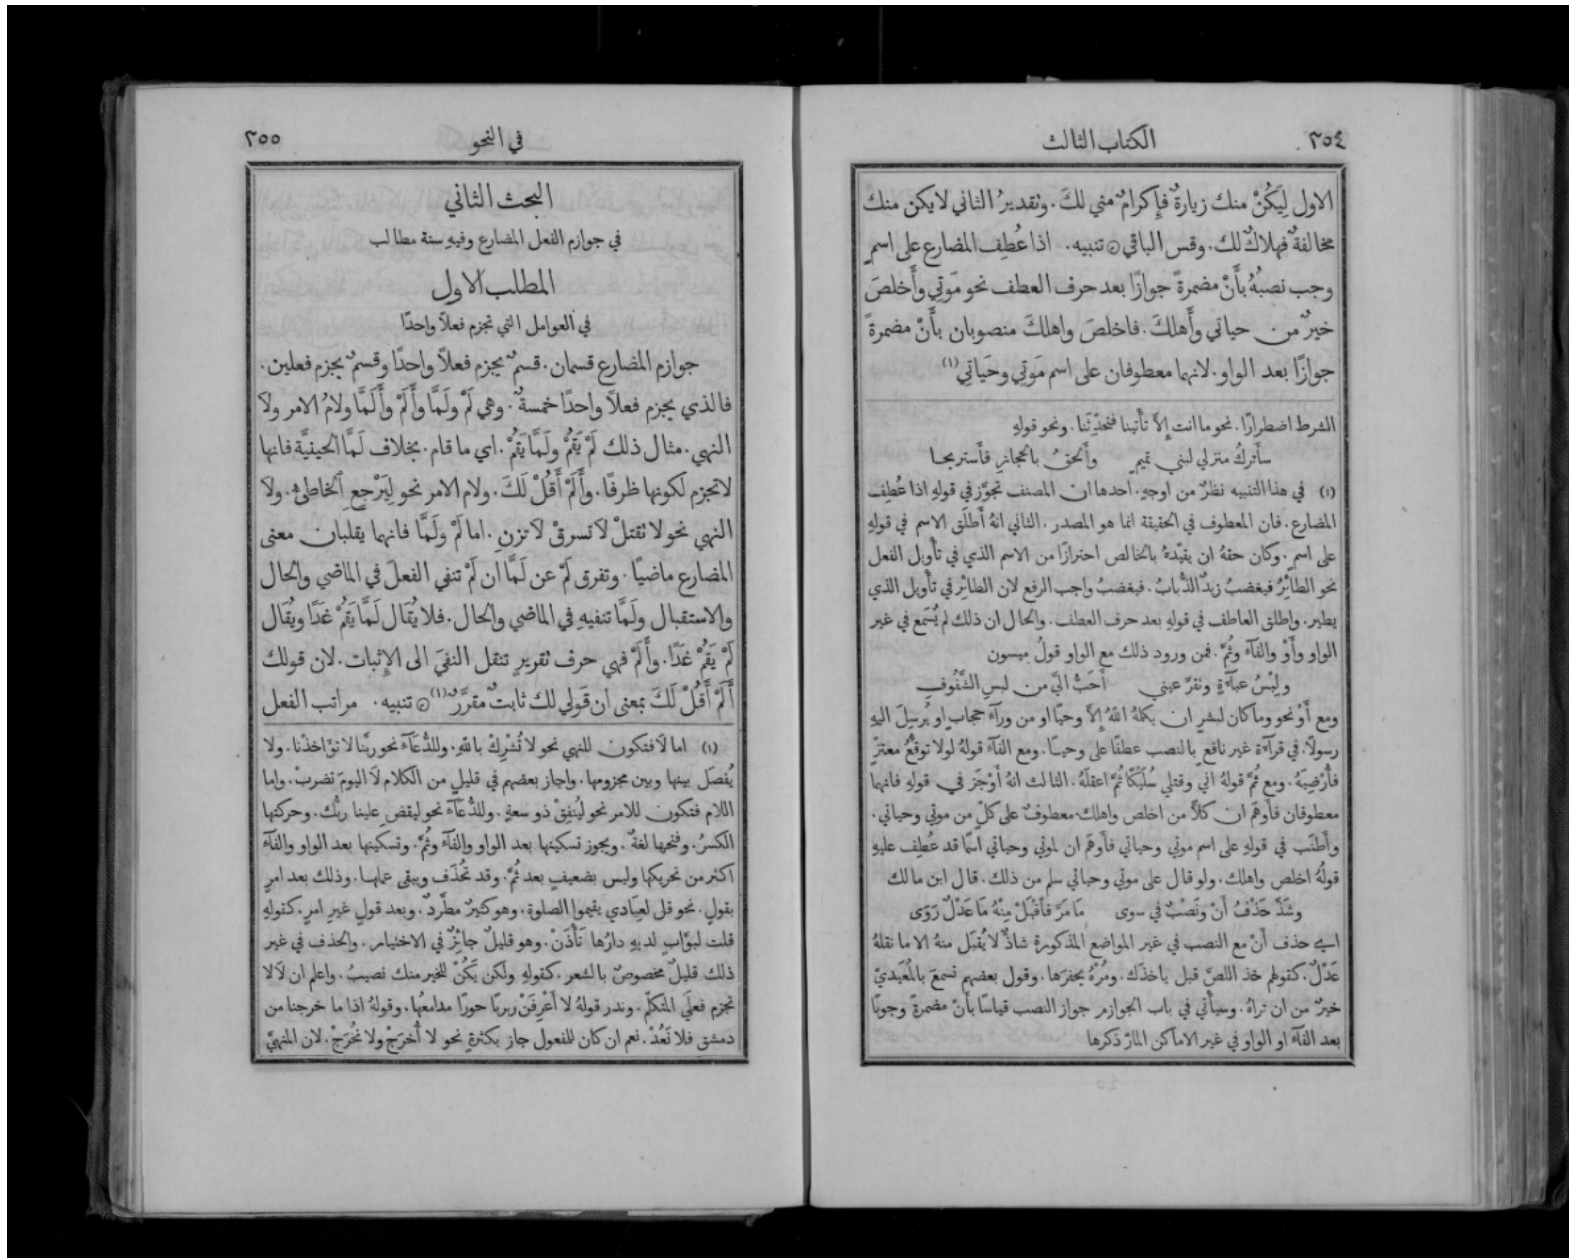 ٣٥٤
الكتاب الثالث
الاول لِيَكُنْ منك زيارةٌ فإِكرامٌ مني لكَ. وتقديرُ الثاني لا يكن منك
مخالفةٌ فهلاكٌ لك. وقس الباقي ۞ تنبيه. اذا عُطِف المضارع على اسمٍ
وجب نصبُهُ بأَنْ مضمرةً جوازًا بعد حرف العطف نحو مَوتِي وأَخلصَ
خيرٌ من حياتي وأَهلكَ. فاخلصَ واهلكَ منصوبان بأَنْ مضمرةً
جوازًا بعد الواو. لانهما معطوفان على اسم مَوتِي وحَياتِي (١)
الشرط اضطرارًا. نحو ما انت إِلاَّ تأْتينا فتحدّثَنا. ونحو قولهِ
سأَتركُ منزلي لبني تميمٍ وأَلحقُ بالحجازِ فأَستريحا
(١) في هذا التنبيه نظرٌ من اوجهٍ. احدها ان المصنف تجوَّز في قولهِ اذا عُطِف
المضارع. فان المعطوف في الحقيقة انما هو المصدر. الثاني انهُ أَطلَق الاسم في قولهِ
على اسمٍ. وكان حقهُ ان يقيّدهُ بالخالص احترازًا من الاسم الذي في تأْويل الفعل
نحو الطائِرُ فيغضبُ زيدٌ الذُّبابُ. فيغضبُ واجب الرفع لان الطائِر في تأْويل الذي
يطير. واطلق العاطف في قولهِ بعد حرف العطف. والحال ان ذلك لم يُسمَع في غير
الواو وأَوْ والفآءِ وثُمَّ. فمن ورود ذلك مع الواو قولُ ميسون
ولِبْسُ عبآءَةٍ وتقرَّ عيني أَحَبُّ اليَّ من لبسِ الشُّفُوفِ
ومع أَوْ نحو وما كان لبشرٍ ان يكلمهُ اللهُ إِلاَّ وحيًا او من ورآءِ حجابٍ او يُرسِلَ اليهِ
رسولاً. في قرآءَة غير نافعٍ بالنصب عطفًا على وحيًا. ومع الفآءِ قولهُ لولا توقُّعُ معترٍّ
فأُرْضِيَهُ. ومع ثُمَّ قولهُ اني وقتلي سُلَيْكًا ثُمَّ اعقلَهُ. الثالث انهُ أَوْجَز في قولهِ فانهما
معطوفان فأَوهَم ان كلاًّ من اخلص واهلك معطوفٌ على كلٍّ من موتي وحياتي.
وأَطنَب في قولهِ على اسم موتي وحياتي فأَوهَم ان لموتي وحياتي اسمًا قد عُطِف عليهِ
قولُهُ اخلص واهلك. ولو قال على موتي وحياتي سلم من ذلك. قال ابن مالك
وشَذَّ حَذْفُ أَنْ ونَصْبٌ في سوى مَا مَرَّ فَاقْبَلْ مِنْهُ مَا عَدْلٌ رَوَى
اي حذف أَنْ مع النصب في غير المواضع المذكورة شاذٌّ لا يُقبَل منهُ الا ما نقلهُ
عَدْلٌ. كقولهم خذ اللصَّ قبل ياخذَك. ومُرْهُ يحفِرَها. وقول بعضهم تسمعَ بالمُعَيديّ
خيرٌ من ان تراهُ. وسيأْتي في باب الجوازم جواز النصب قياسًا بأَنْ مضمرة وجوبًا
بعد الفآءِ او الواو في غير الاماكن المارّ ذكرها
في النحو
٣٥٥
البحث الثاني
في جوازم الفعل المضارع وفيهِ ستة مطالب
المطلب الاول
في العوامل التي تجزم فعلاً واحدًا
جوازم المضارع قسمان. قسمٌ يجزم فعلاً واحدًا وقسمٌ يجزم فعلين.
فالذي يجزم فعلاً واحدًا خمسةٌ. وهي لَمْ ولَمَّا وأَلَمْ وأَلَمَّا ولامُ الامر ولاَ
النهي. مثال ذلك لَمْ يَقُمْ ولَمَّا يَقُمْ. اي ما قام. بخلاف لَمَّا الحينيَّة فانها
لا تجزم لكونها ظرفًا. وأَلَمْ أَقُلْ لَكَ. ولام الامر نحو لِيَرْجِعِ ٱلخاطئُ. ولاَ
النهي نحو لا تقتلْ لاَ تسرقْ لاَ تزنِ. اما لَمْ ولَمَّا فانهما يقلبان معنى
المضارع ماضيًا. وتفرق لَمْ عن لَمَّا ان لَمْ تنفي الفعلَ في الماضي والحال
والاستقبال ولَمَّا تنفيهِ في الماضي والحال. فلا يُقال لَمَّا يَقُمْ غدًا ويُقَال
لَمْ يَقُمْ غَدًا. وأَلَمْ فهي حرف تقريرٍ تنقل النفيَ الى الإِثبات. لان قولك
أَلَمْ أَقُلْ لَكَ بمعنى ان قَولي لك ثابتٌ مقرَّرٌ (١) ۞ تنبيه. مراتب الفعل
(١) اما لاَ فتكون للنهي نحو لا تُشْرِكْ باللهِ. وللدُّعآءِ نحو ربَّنا لا تؤَاخذْنا. ولا
يُفصَل بينها وبين مجزومها. واجاز بعضهم في قليلٍ من الكلام لاَ اليومَ تضربْ. واما
اللام فتكون للامر نحو لِيُنفِقْ ذو سعةٍ. وللدُّعآءِ نحو ليقضِ علينا ربُّك. وحركتها
الكسرُ. وفتحها لغةٌ. ويجوز تسكينها بعد الواو والفآءِ وثُمَّ. وتسكينها بعد الواو والفآءِ
اكثر من تحريكها وليس بضعيفٍ بعد ثُمَّ. وقد تُحذَف ويبقى عملها. وذلك بعد امرٍ
بقولٍ. نحو قل لعِبَادي يقيموا الصلوة. وهو كثيرٌ مطَّردٌ. وبعد قولٍ غير امرٍ. كقولهِ
قلت لبوَّابٍ لديهِ دارُها تَأْذَنْ. وهو قليلٌ جائِزٌ في الاختيار. والحذف في غير
ذلك قليلٌ مخصوصٌ بالشعر. كقولهِ ولكن يَكُنْ للخير منك نصيبُ. واعلم ان لاَ لا
تجزم فعلَي المتكلّم. وندر قولهُ لا أَعْرِفَنْ ربربًا حورًا مدامعُها. وقولهُ اذا ما خرجنا من
دمشق فلا نَعُدْ. نعم ان كان للمفعول جاز بكثرةٍ نحو لا أُخرَجْ ولا نُخرَجْ. لان المنهيَّ